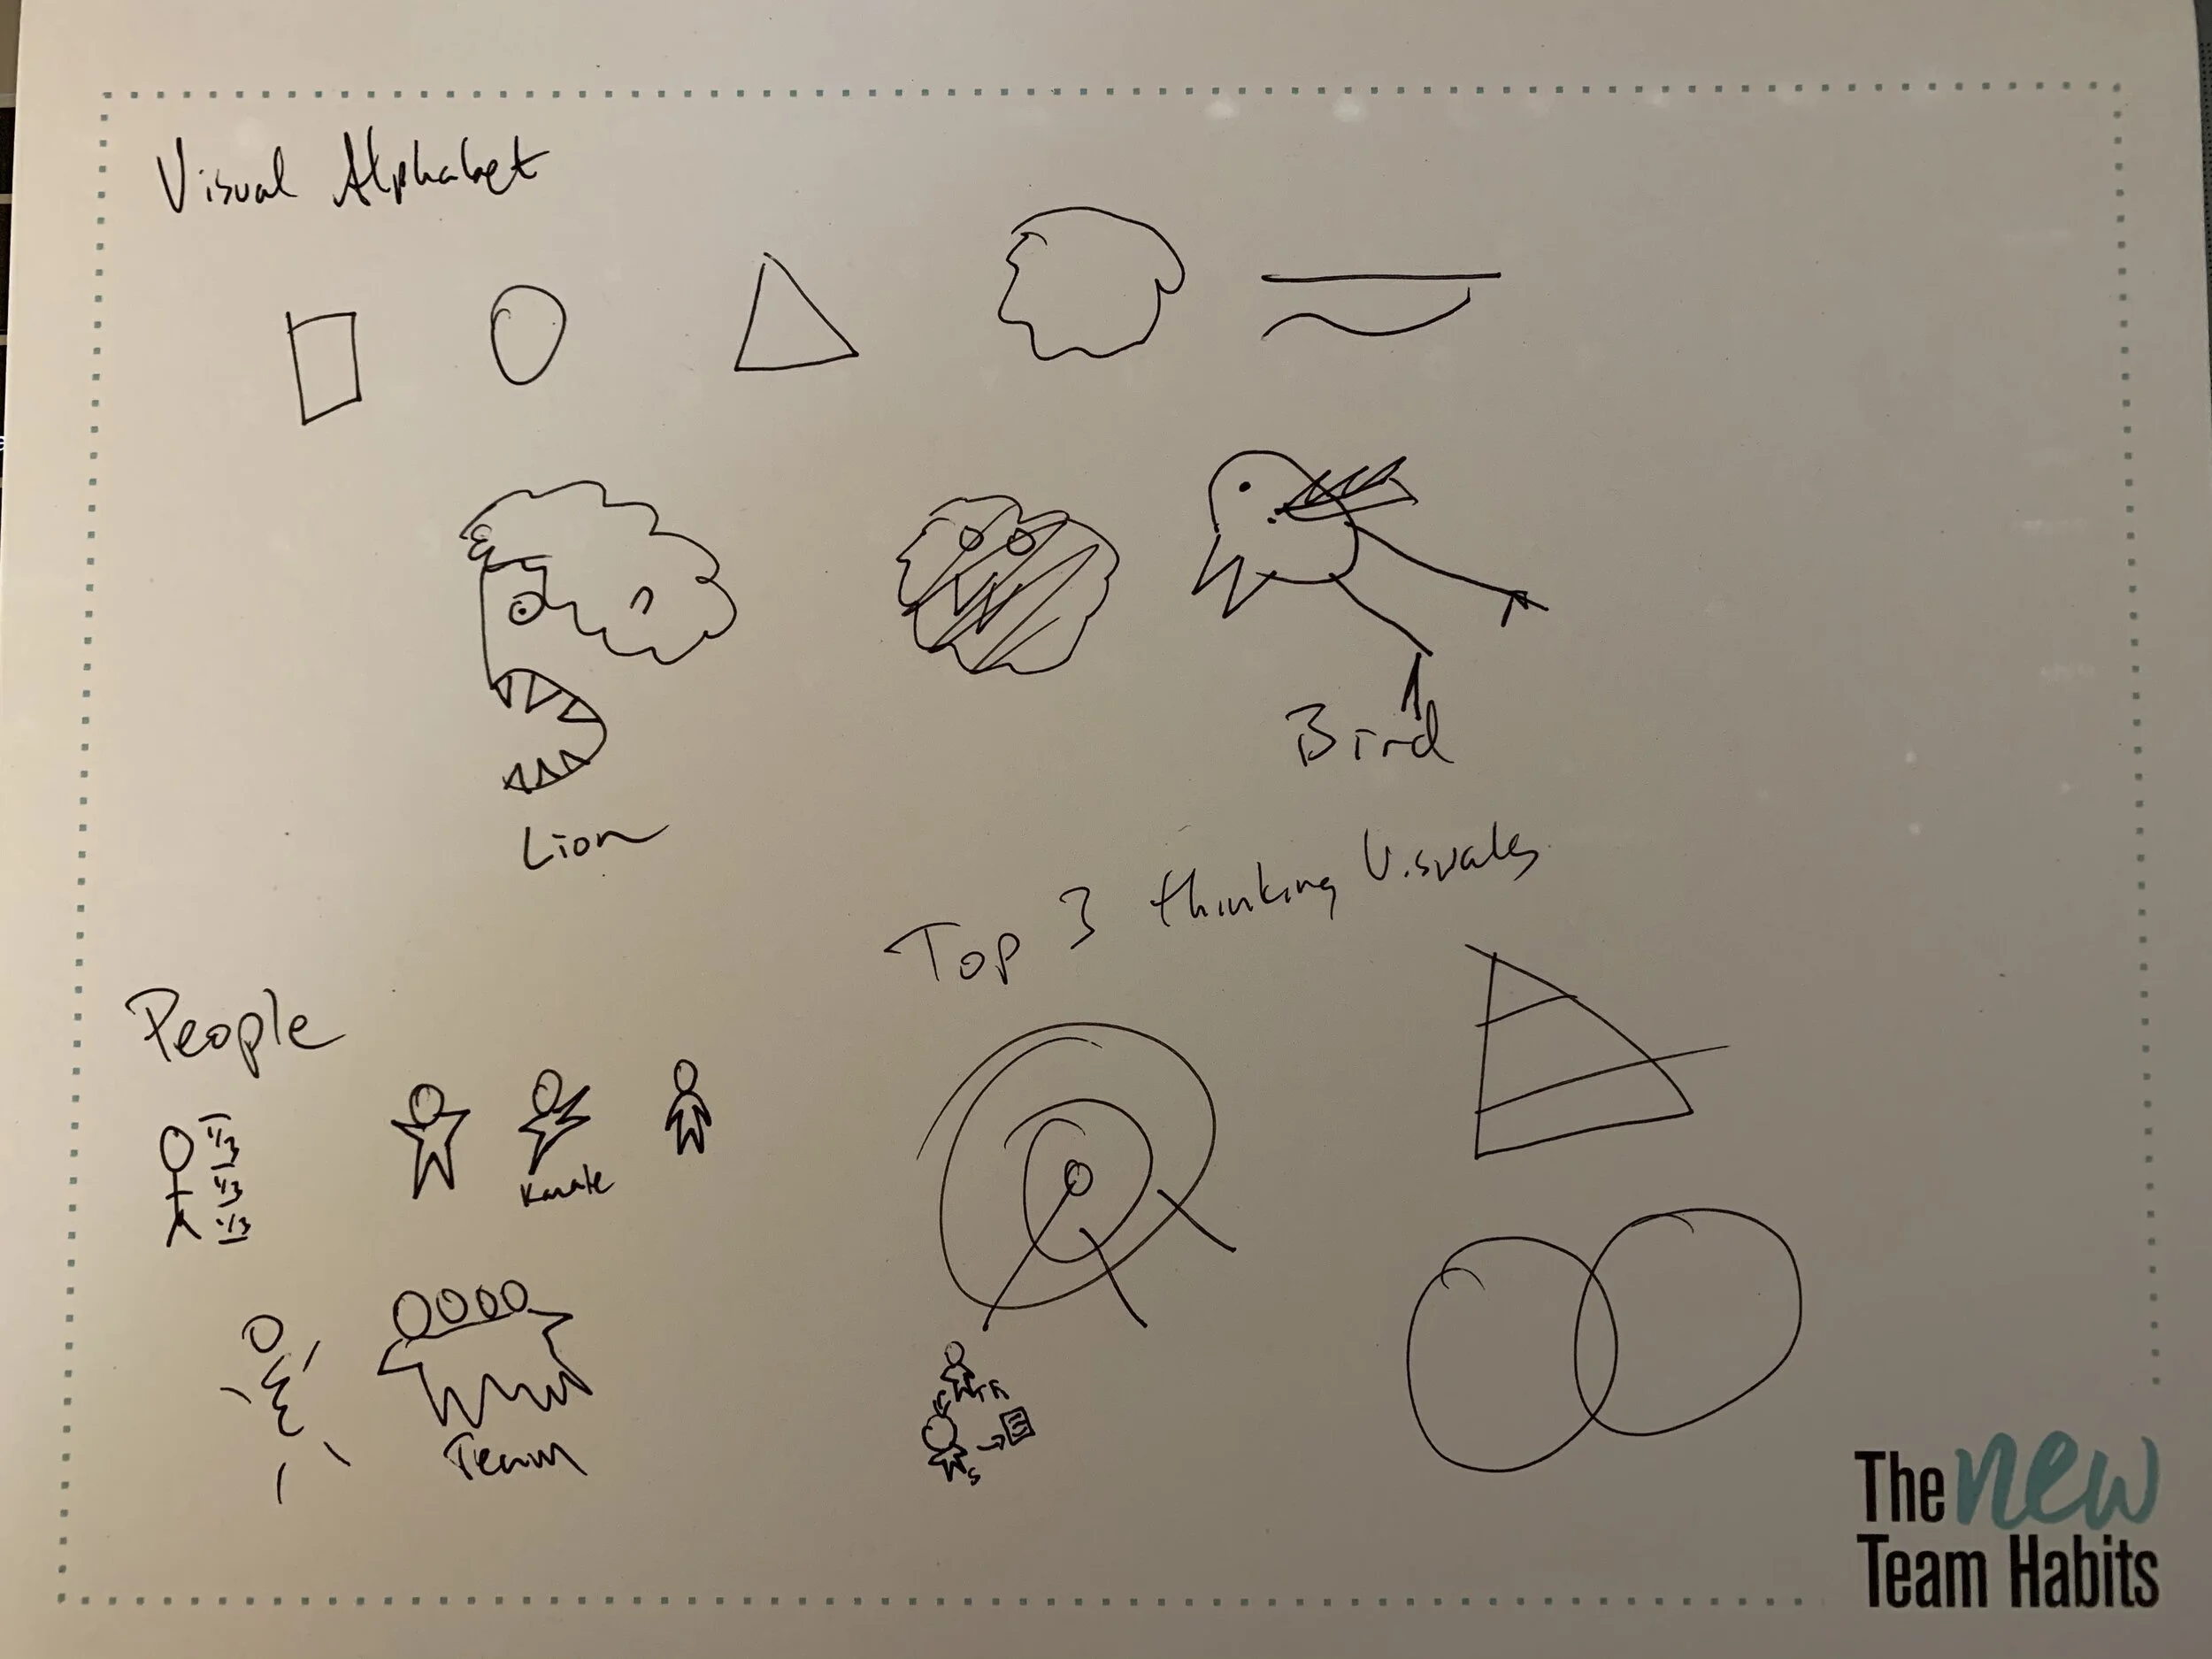 Visual Alphabet
Lion
Bird
Top 3 thinking Visuals
People
1/3
1/3
1/3
Karate
Team
The new
Team Habits